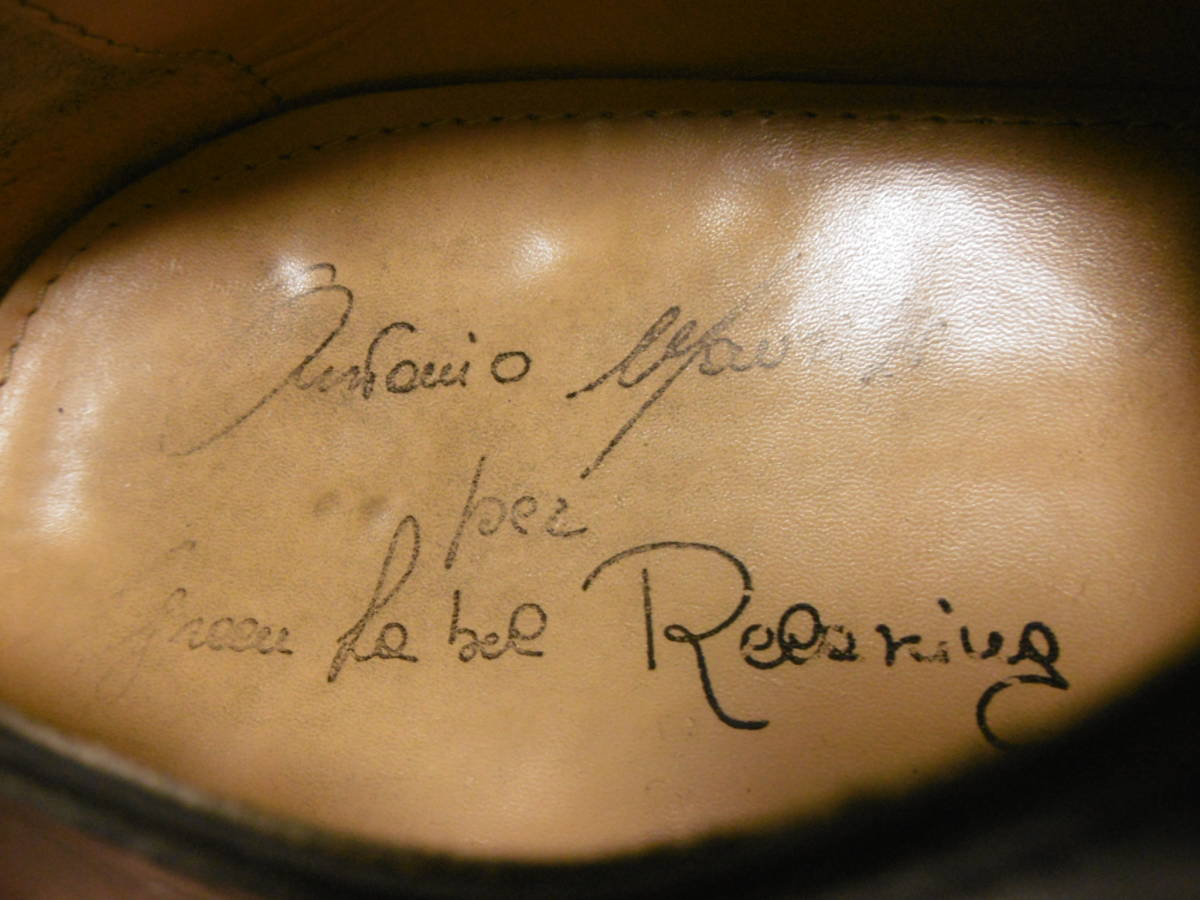 Antonio
per
Green Label Relaxing